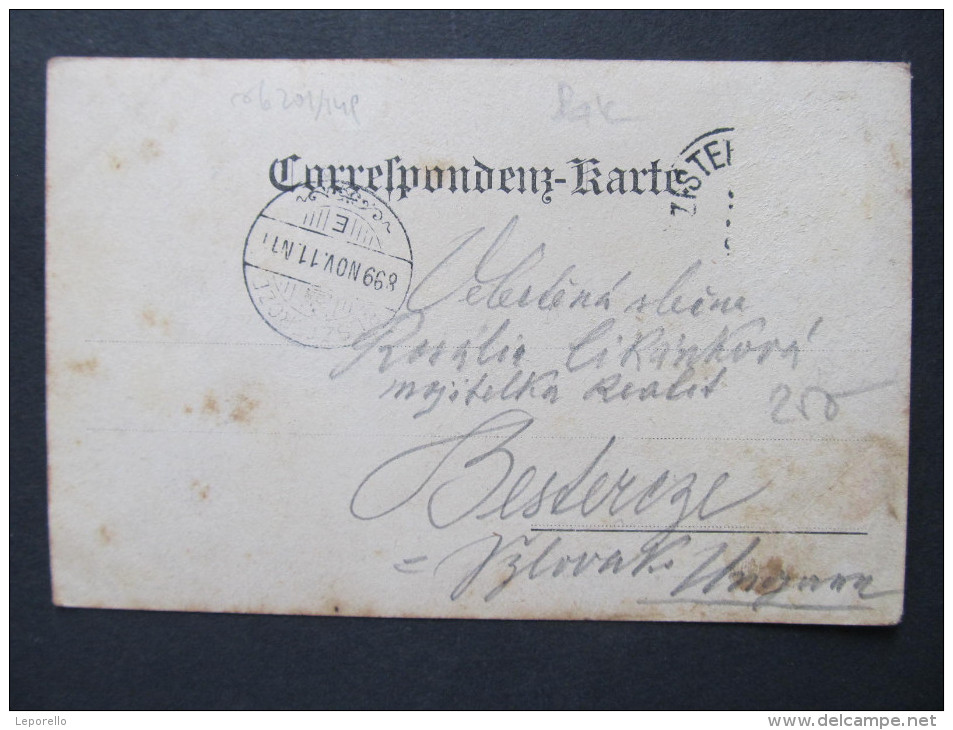 Correspondenz-Karte
899 NOV. 11. N 11
E
Velectěná slečna
Rosálie Cikánková
majitelka realit
250
Bestercze
= Szlovak. Ungarn
Leporello
www.delcampe.net